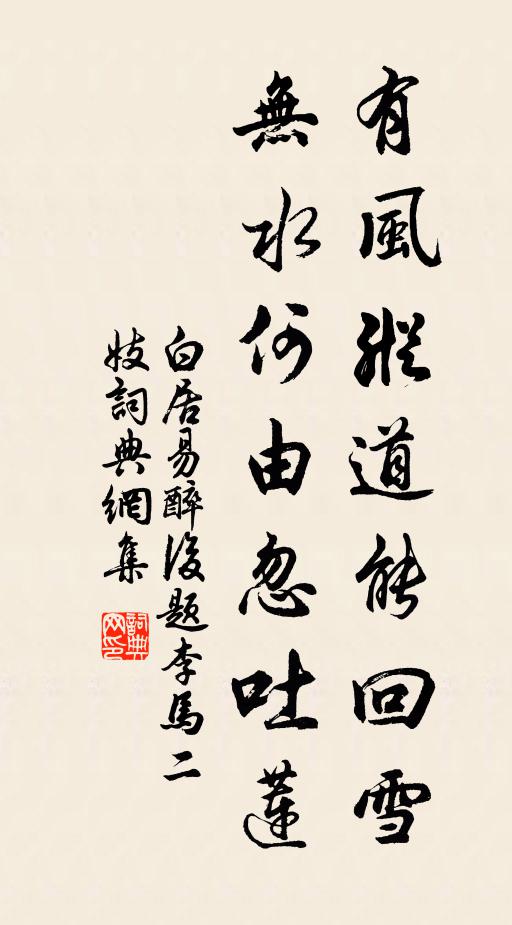 有風縱道能回雪
無水何由忽吐蓮
白居易醉後題李馬二
妓詞典網集
詞典
网印